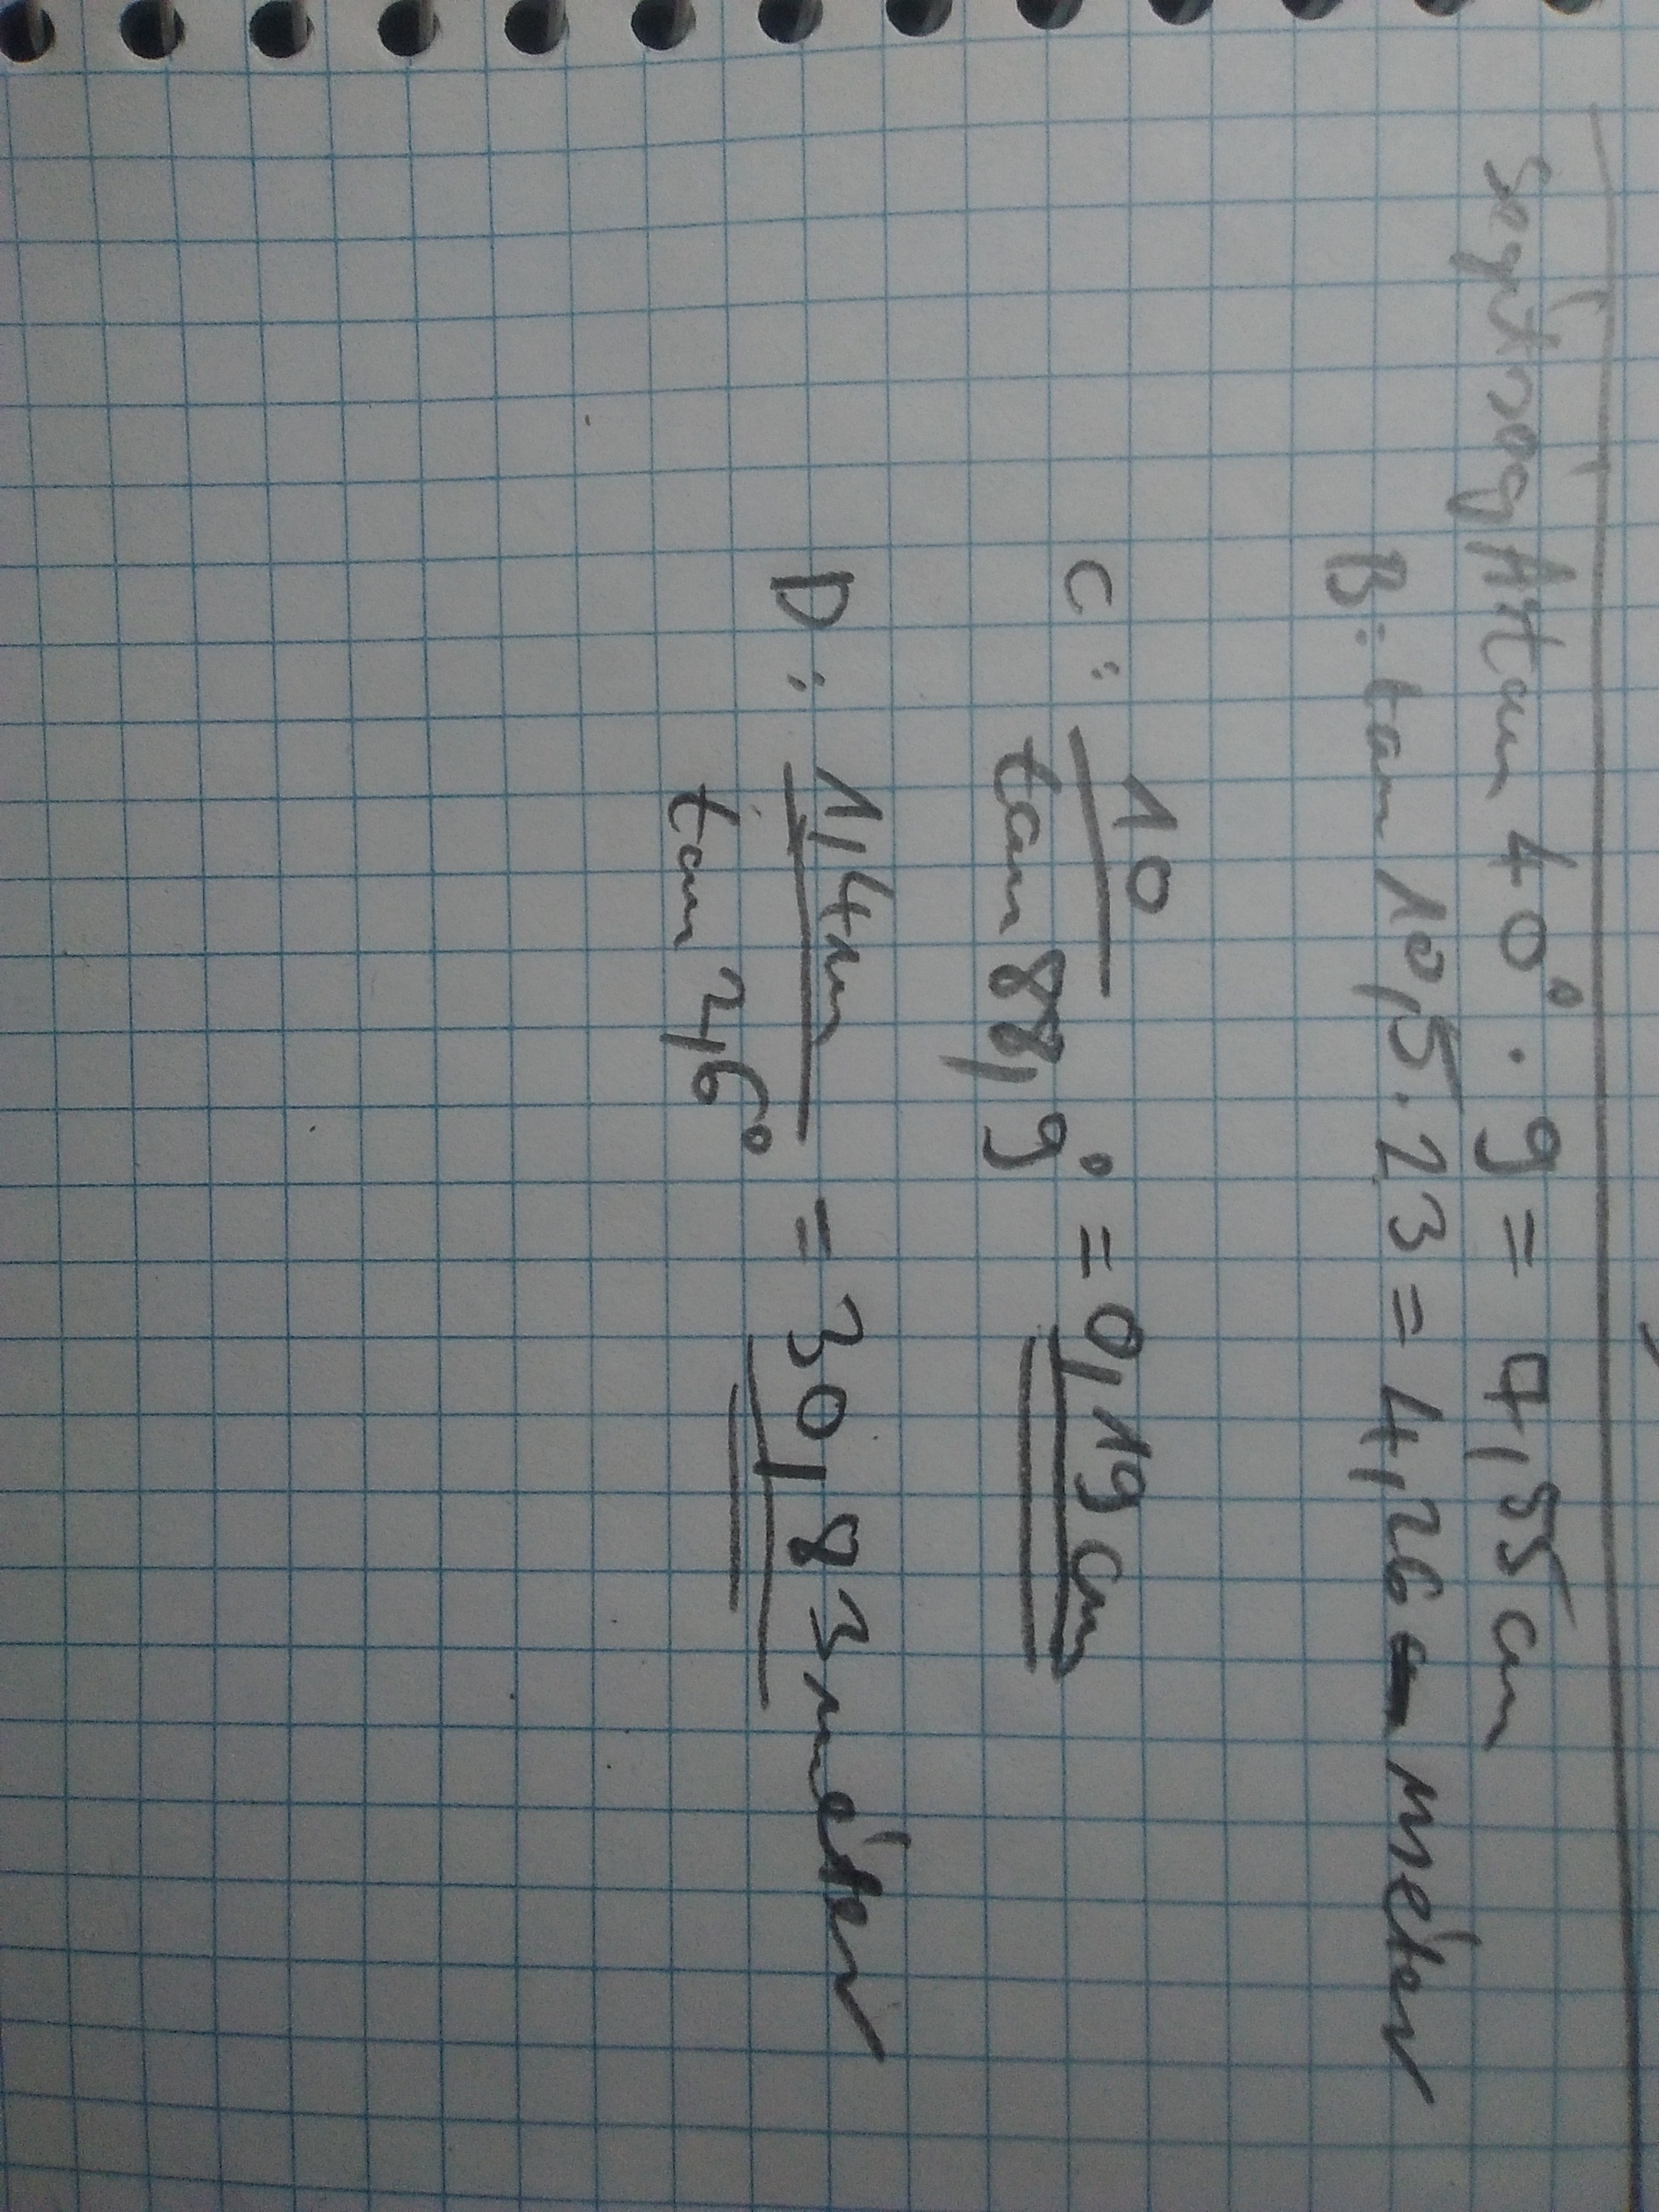 segítség A: tan 40° · 9 = 7,55 cm
B: tan 10,5 · 23 = 4,26 méter
C: 10
tan 88,9° = 0,19 cm
D: 1,4m
tan 2,6° = 30,83 méter